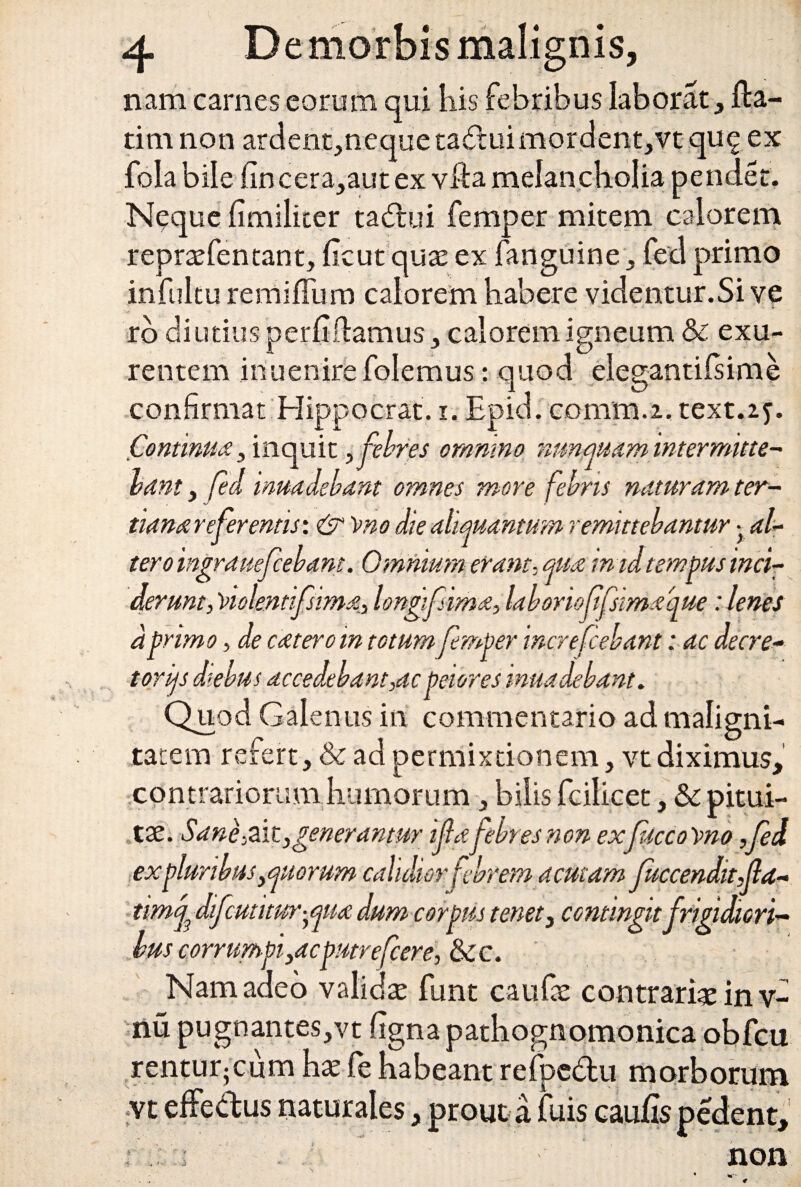 4 De morbis malignis,
nam carnes eorum qui his febribus laborãt, ſta-
tim non ardent,neque tactui mordent,vt quę ex
ſola bile ſincera,aut ex vſta melancholia pendẽt.
Neque ſimiliter tactui ſemper mitem calorem
repræſentant, ſicut quæ ex ſanguine, ſed primo
inſultu remiſſum calorem habere videntur.Si ve
rò diutius perſiſtamus, calorem igneum & exu-
rentem inuenire ſolemus: quod elegantiſsimè
confirmat Hippocrat. 1. Epid. comm.2. text.25.
Continuæ, inquit, febres omnino nunquam intermitte-
bant, ſed inuadebant omnes more febris naturam ter-
tianæ referentis: & vno die aliquantum remittebantur; al-
tero ingraueſcebant. Omnium erant, quæ in id tempus inci-
derunt, violentiſsimæ, longiſsimæ, laborioſiſsimæque: lenes
à primo, de cætero in totum ſemper increſcebant: ac decre-
torijs diebus accedebant,ac peiores inuadebant.
Quod Galenus in commentario ad maligni-
tatem refert, & ad permixtionem, vt diximus,
contrariorum humorum, bilis ſcilicet, & pitui-
tæ. Sanè,ait, generantur iſtæ febres non ex ſucco vno, ſed
ex pluribus,quorum calidior febrem acutam ſuccendit,ſta-
timq; diſcutitur;quæ dum corpus tenet, contingit frigidiori-
bus corrumpi,ac putreſcere, &c.
Nam adeò validæ ſunt cauſæ contrariæ in v-
nũ pugnantes,vt ſigna pathognomonica obſcu
rentur;cùm hæ ſe habeant reſpectu morborum
vt effectus naturales, prout à ſuis cauſis pẽdent,
non